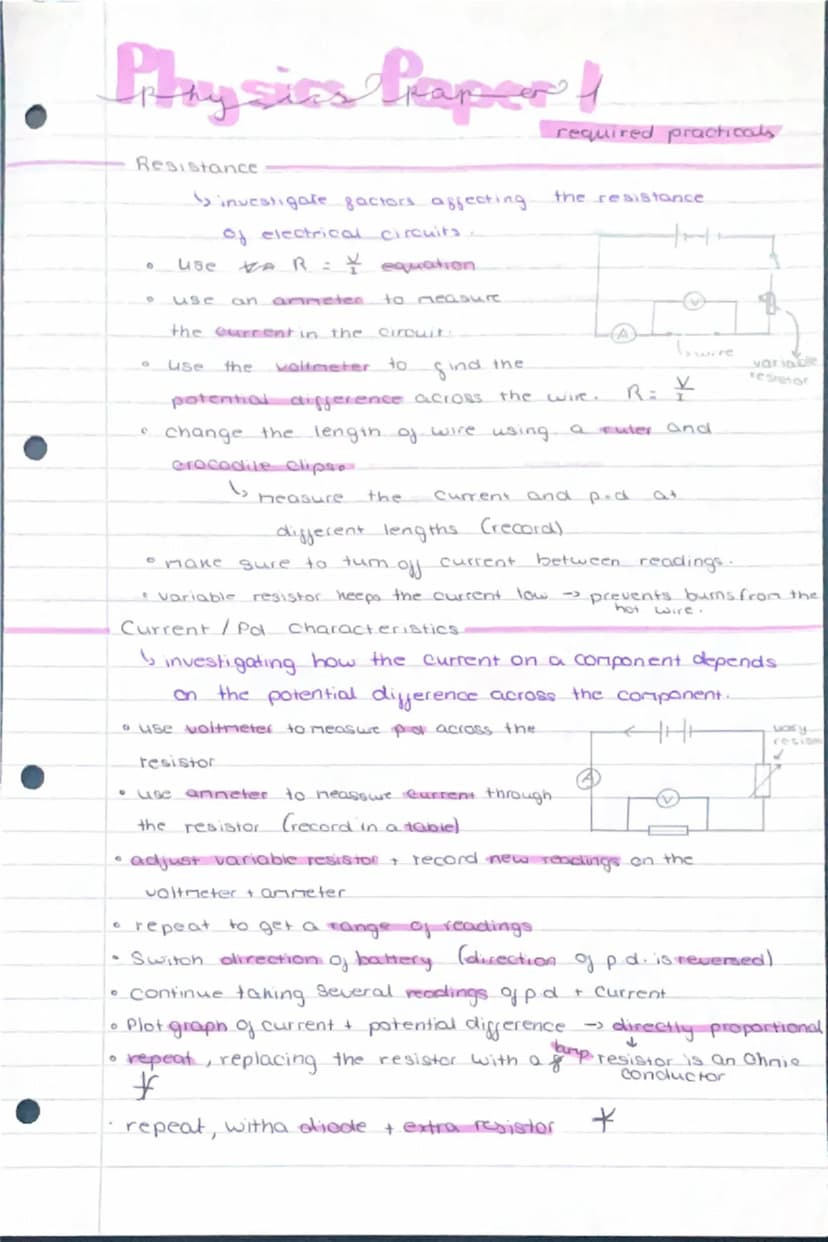 Physics Paper 1
required practicals
Resistance
↳ investigate factors affecting the resistance
of electrical circuits.
• use R = V/I equation
• use an ammeter to measure
the current in the circuit.
• use the voltmeter to find the
potential difference across the wire. R = V/I
• change the length of wire using a ruler and
crocodile clips.
↳ measure the current and p.d at
different lengths (record)
• make sure to turn off current between readings.
• variable resistor keeps the current low → prevents burns from the
hot wire.
V
A
↳ wire
variable
resistor
Current / Pd Characteristics
↳ investigating how the current on a component depends
on the potential difference across the component.
• use voltmeter to measure pd across the
resistor
• use ammeter to measure current through
the resistor (record in a table)
A
V
vary
• adjust variable resistor + record new readings on the
voltmeter + ammeter
• repeat to get a range of readings
• Switch direction of battery (direction of p.d. is reversed)
• continue taking several readings of pd + current
• Plot graph of current + potential difference → directly proportional
↓
• repeat, replacing the resistor with a lamp resistor is an Ohmic
conductor
*
• repeat, with a diode + extra resistor *